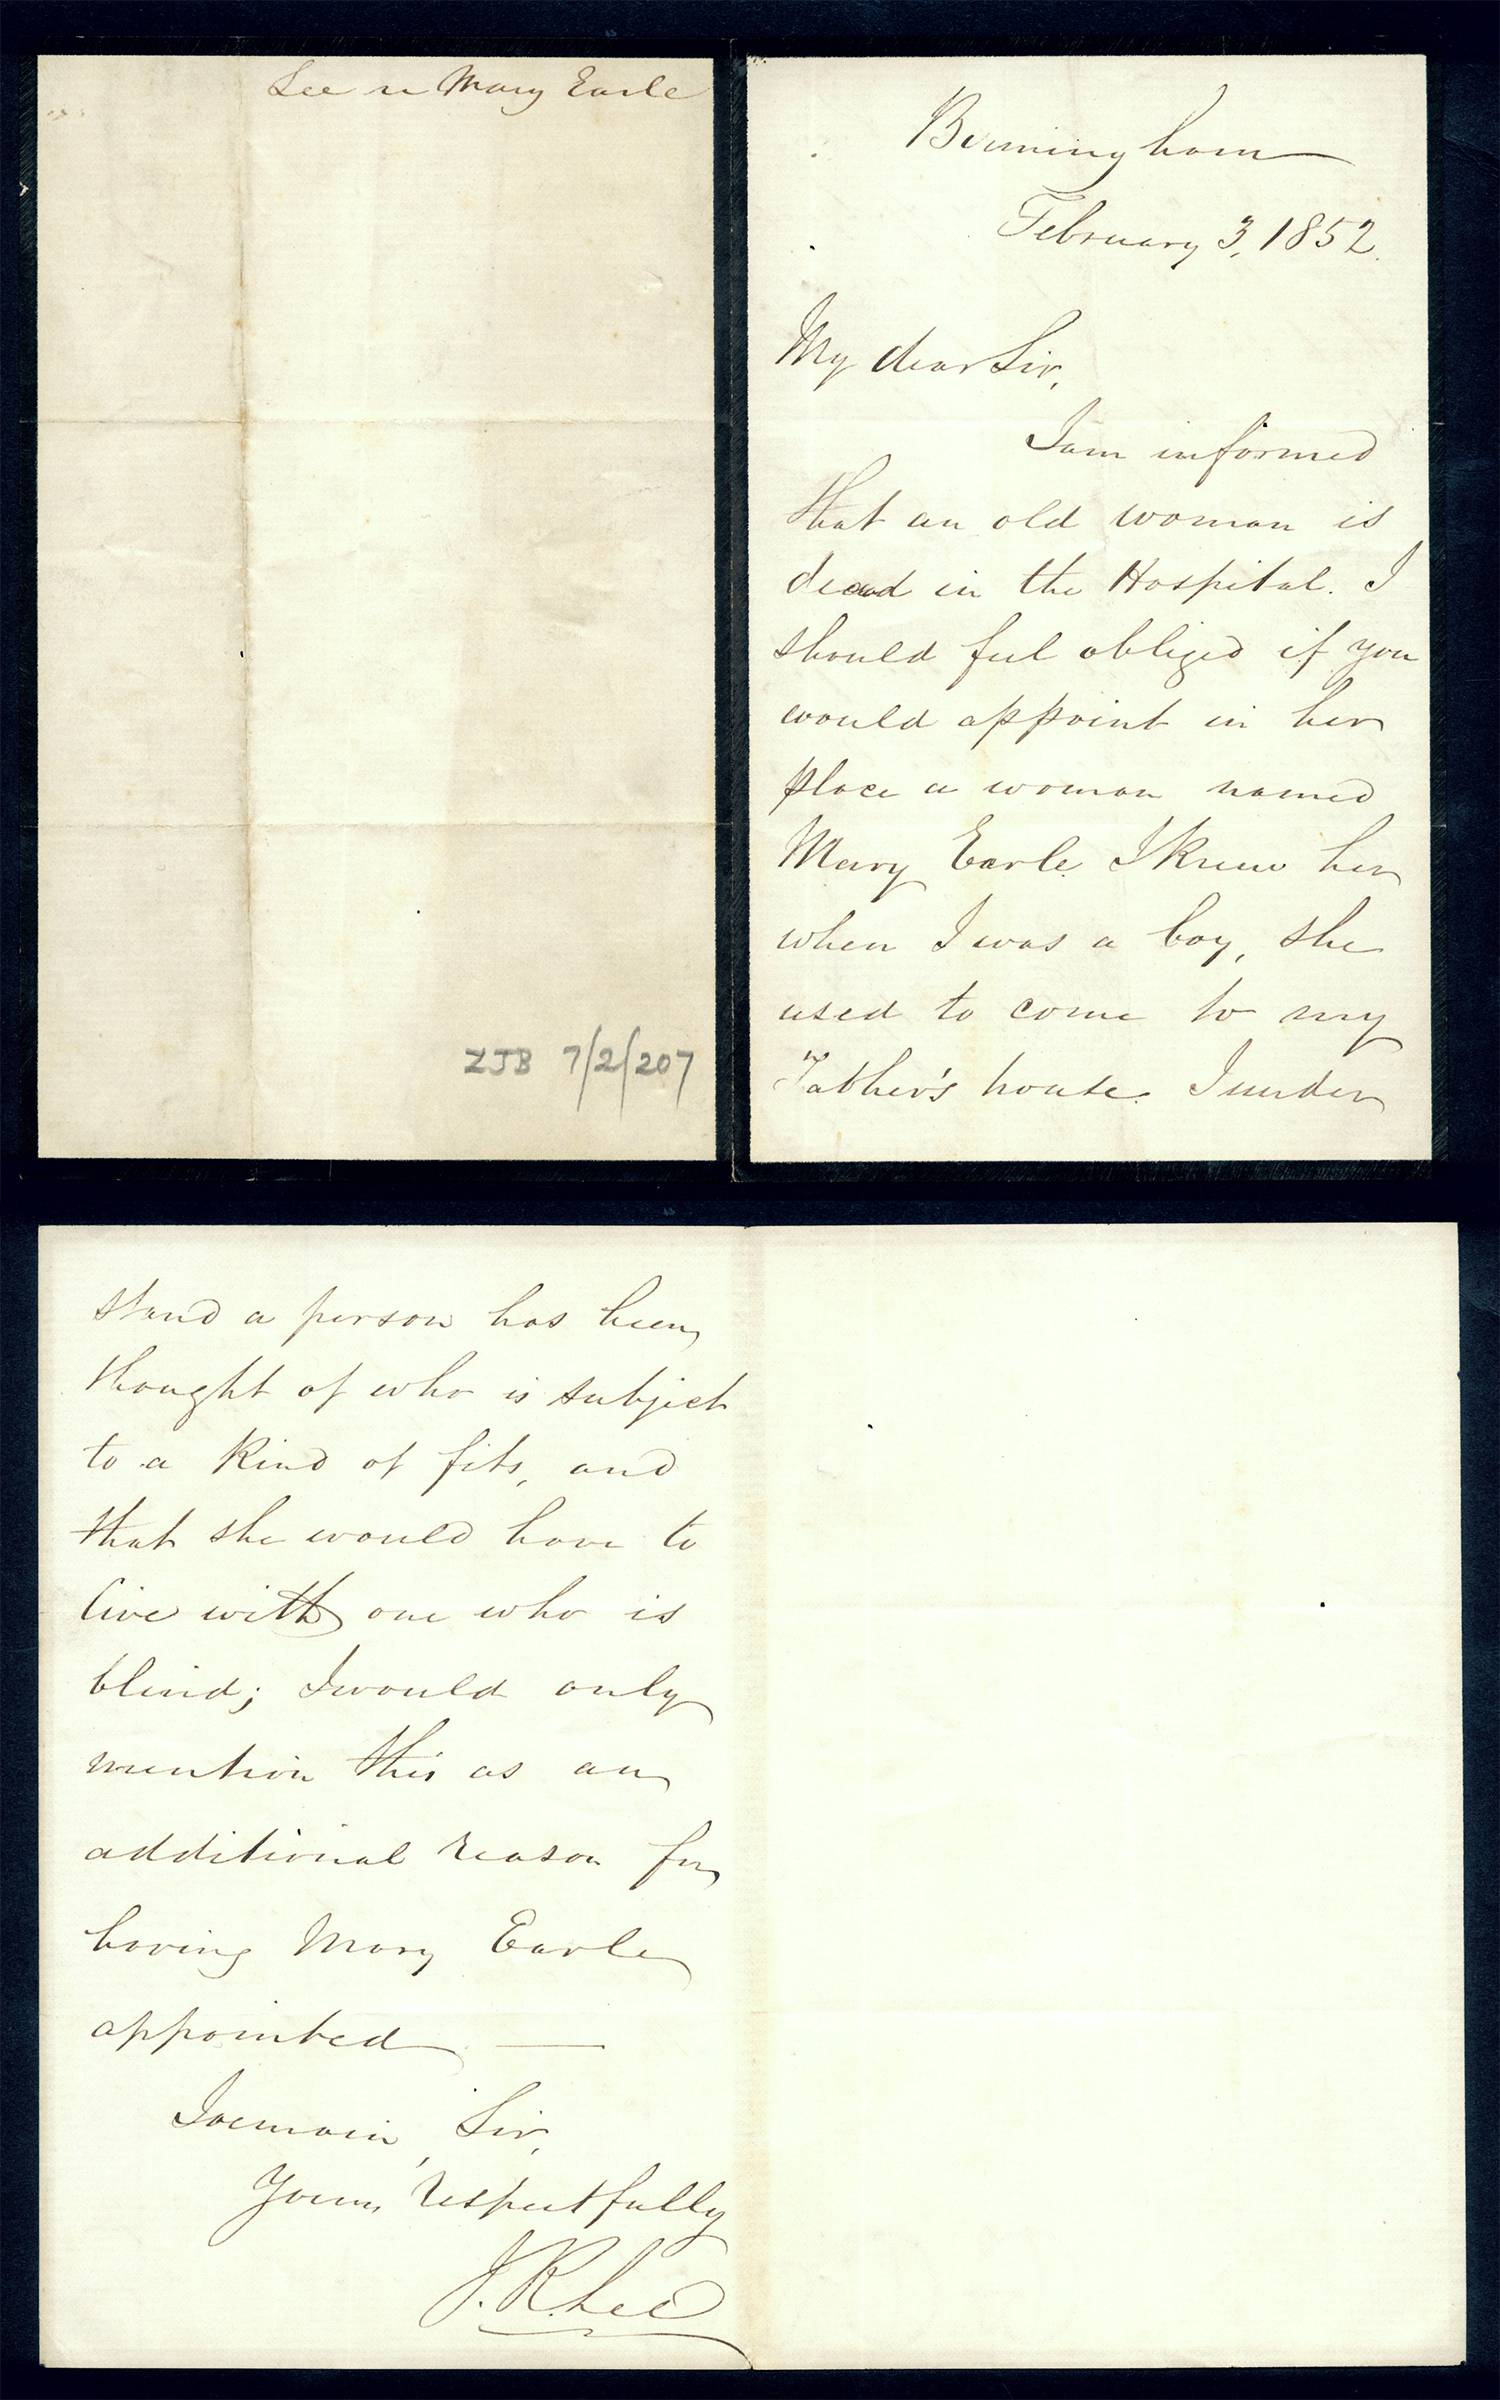 Lee re Mary Earle
ZJB 7/2/207
Birmingham
February 3, 1852.
My dear Sir,
I am informed
that an old woman is
dead in the Hospital. I
should feel obliged if you
would appoint in her
place a woman named
Mary Earle. I knew her
when I was a boy, she
used to come to my
Father's house. I under
stand a person has been
thought of who is subject
to a kind of fits, and
that she would have to
live with one who is
blind; I would only
mention this as an
additional reason for
having Mary Earle
appointed —
I remain, Sir,
Yours respectfully
J. R. Lee